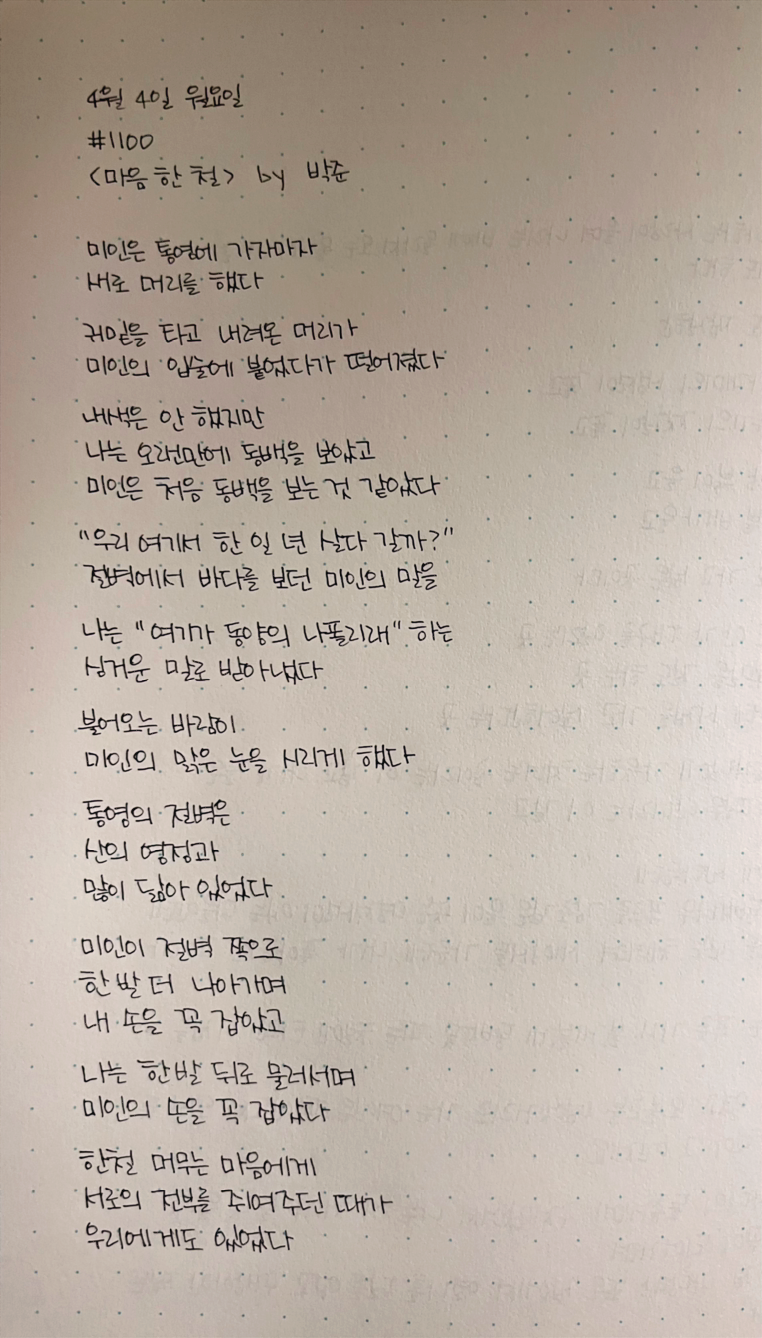 4월 4일 월요일
#1100
<마음 한 철> by 박준
미인은 통영에 가자마자
새로 머리를 했다
귀밑을 타고 내려온 머리가
미인의 입술에 붙었다가 떨어졌다
내색은 안 했지만
나는 오랜만에 동백을 보았고
미인은 처음 동백을 보는 것 같았다
"우리 여기서 한 일 년 살다 갈까?"
절벽에서 바다를 보던 미인의 말을
나는 "여기가 동양의 나폴리래" 하는
싱거운 말로 받아냈다
불어오는 바람이
미인의 맑은 눈을 시리게 했다
통영의 절벽은
산의 영정과
많이 닮아 있었다
미인이 절벽 쪽으로
한 발 더 나아가며
내 손을 꼭 잡았고
나는 한 발 뒤로 물러서며
미인의 손을 꼭 잡았다
한철 머무는 마음에게
서로의 전부를 쥐여주던 때가
우리에게도 있었다